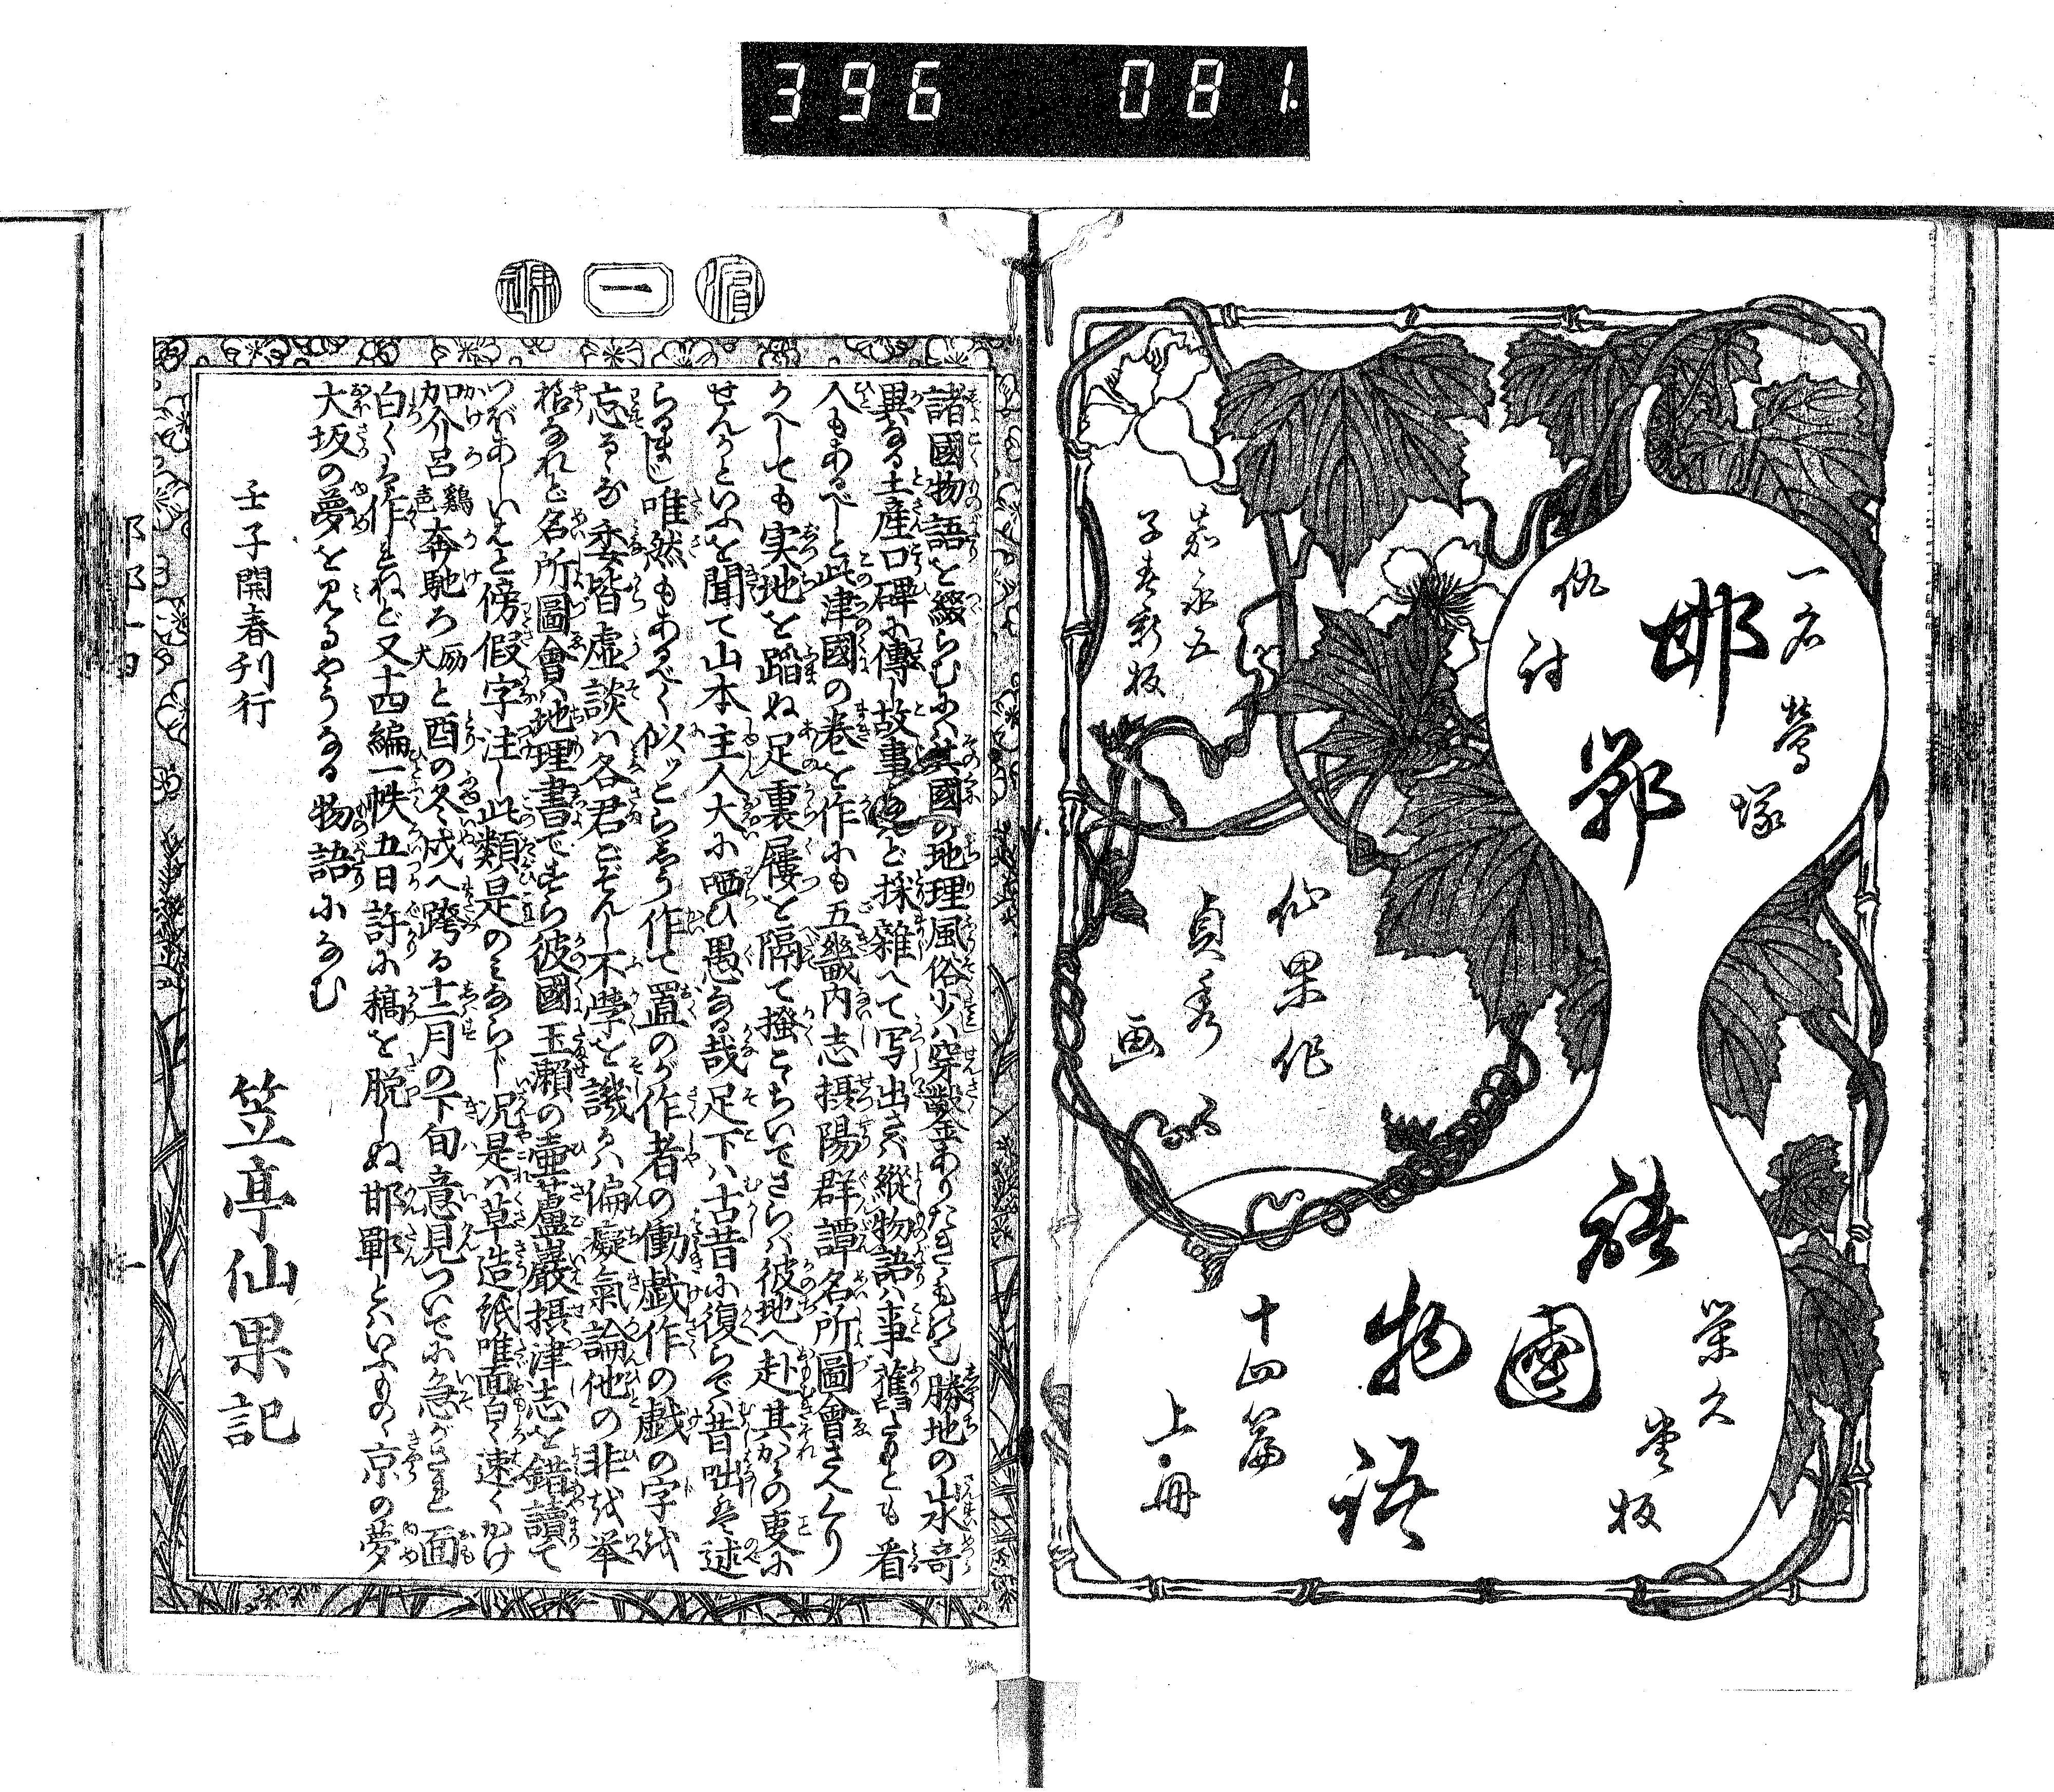 396 081.
一名 鶯塚
邯鄲
仇討
諸國
物語
栄久堂板
十四篇
上冊
嘉永五
子春新板
仙果作
貞秀画
濱
一
諸國物語を綴らむには其國の地理風俗少は穿鑿ありたきものと勝地の山水奇
異なる土産口碑に傳し故事などを採雑へて写出さば縦物語は事舊たりとも看
人もあるべしと此津國の巻を作にも五畿内志摂陽群譚名所圖會さへくり
かへしても実地を蹈ぬ足裏屨を隔て掻こゝちいでさらば彼地へ赴其がの叓に
せんかといふを聞て山本主人大に哂ひ愚なる哉足下は古昔に復らでは昔咄は述
らるまじ唯然もあるべく似ッこらしう作て置のが作者の働戯作の戯の字を
忘るゝな委皆虚談は各君ごぞんじ不學を譏るは偏癡氣論他の非を挙
なれど名所圖會は地理書ですら彼國玉瀬の壷蘆巌摂津志を錯讀て
つぼあしいはと傍假字注し此類是のみならず况是は草造紙唯面白く速くかけ
かけろ鷄奔馳ろと酉の冬戌へ跨る十二月の下旬意見ついでに急がされ面
白くは作らねど又十四編一帙五日許に稿を脱しぬ邯鄲とはいふものゝ京の夢
大坂の夢を見るやうなる物語になむ
壬子開春刊行
笠亭仙果記